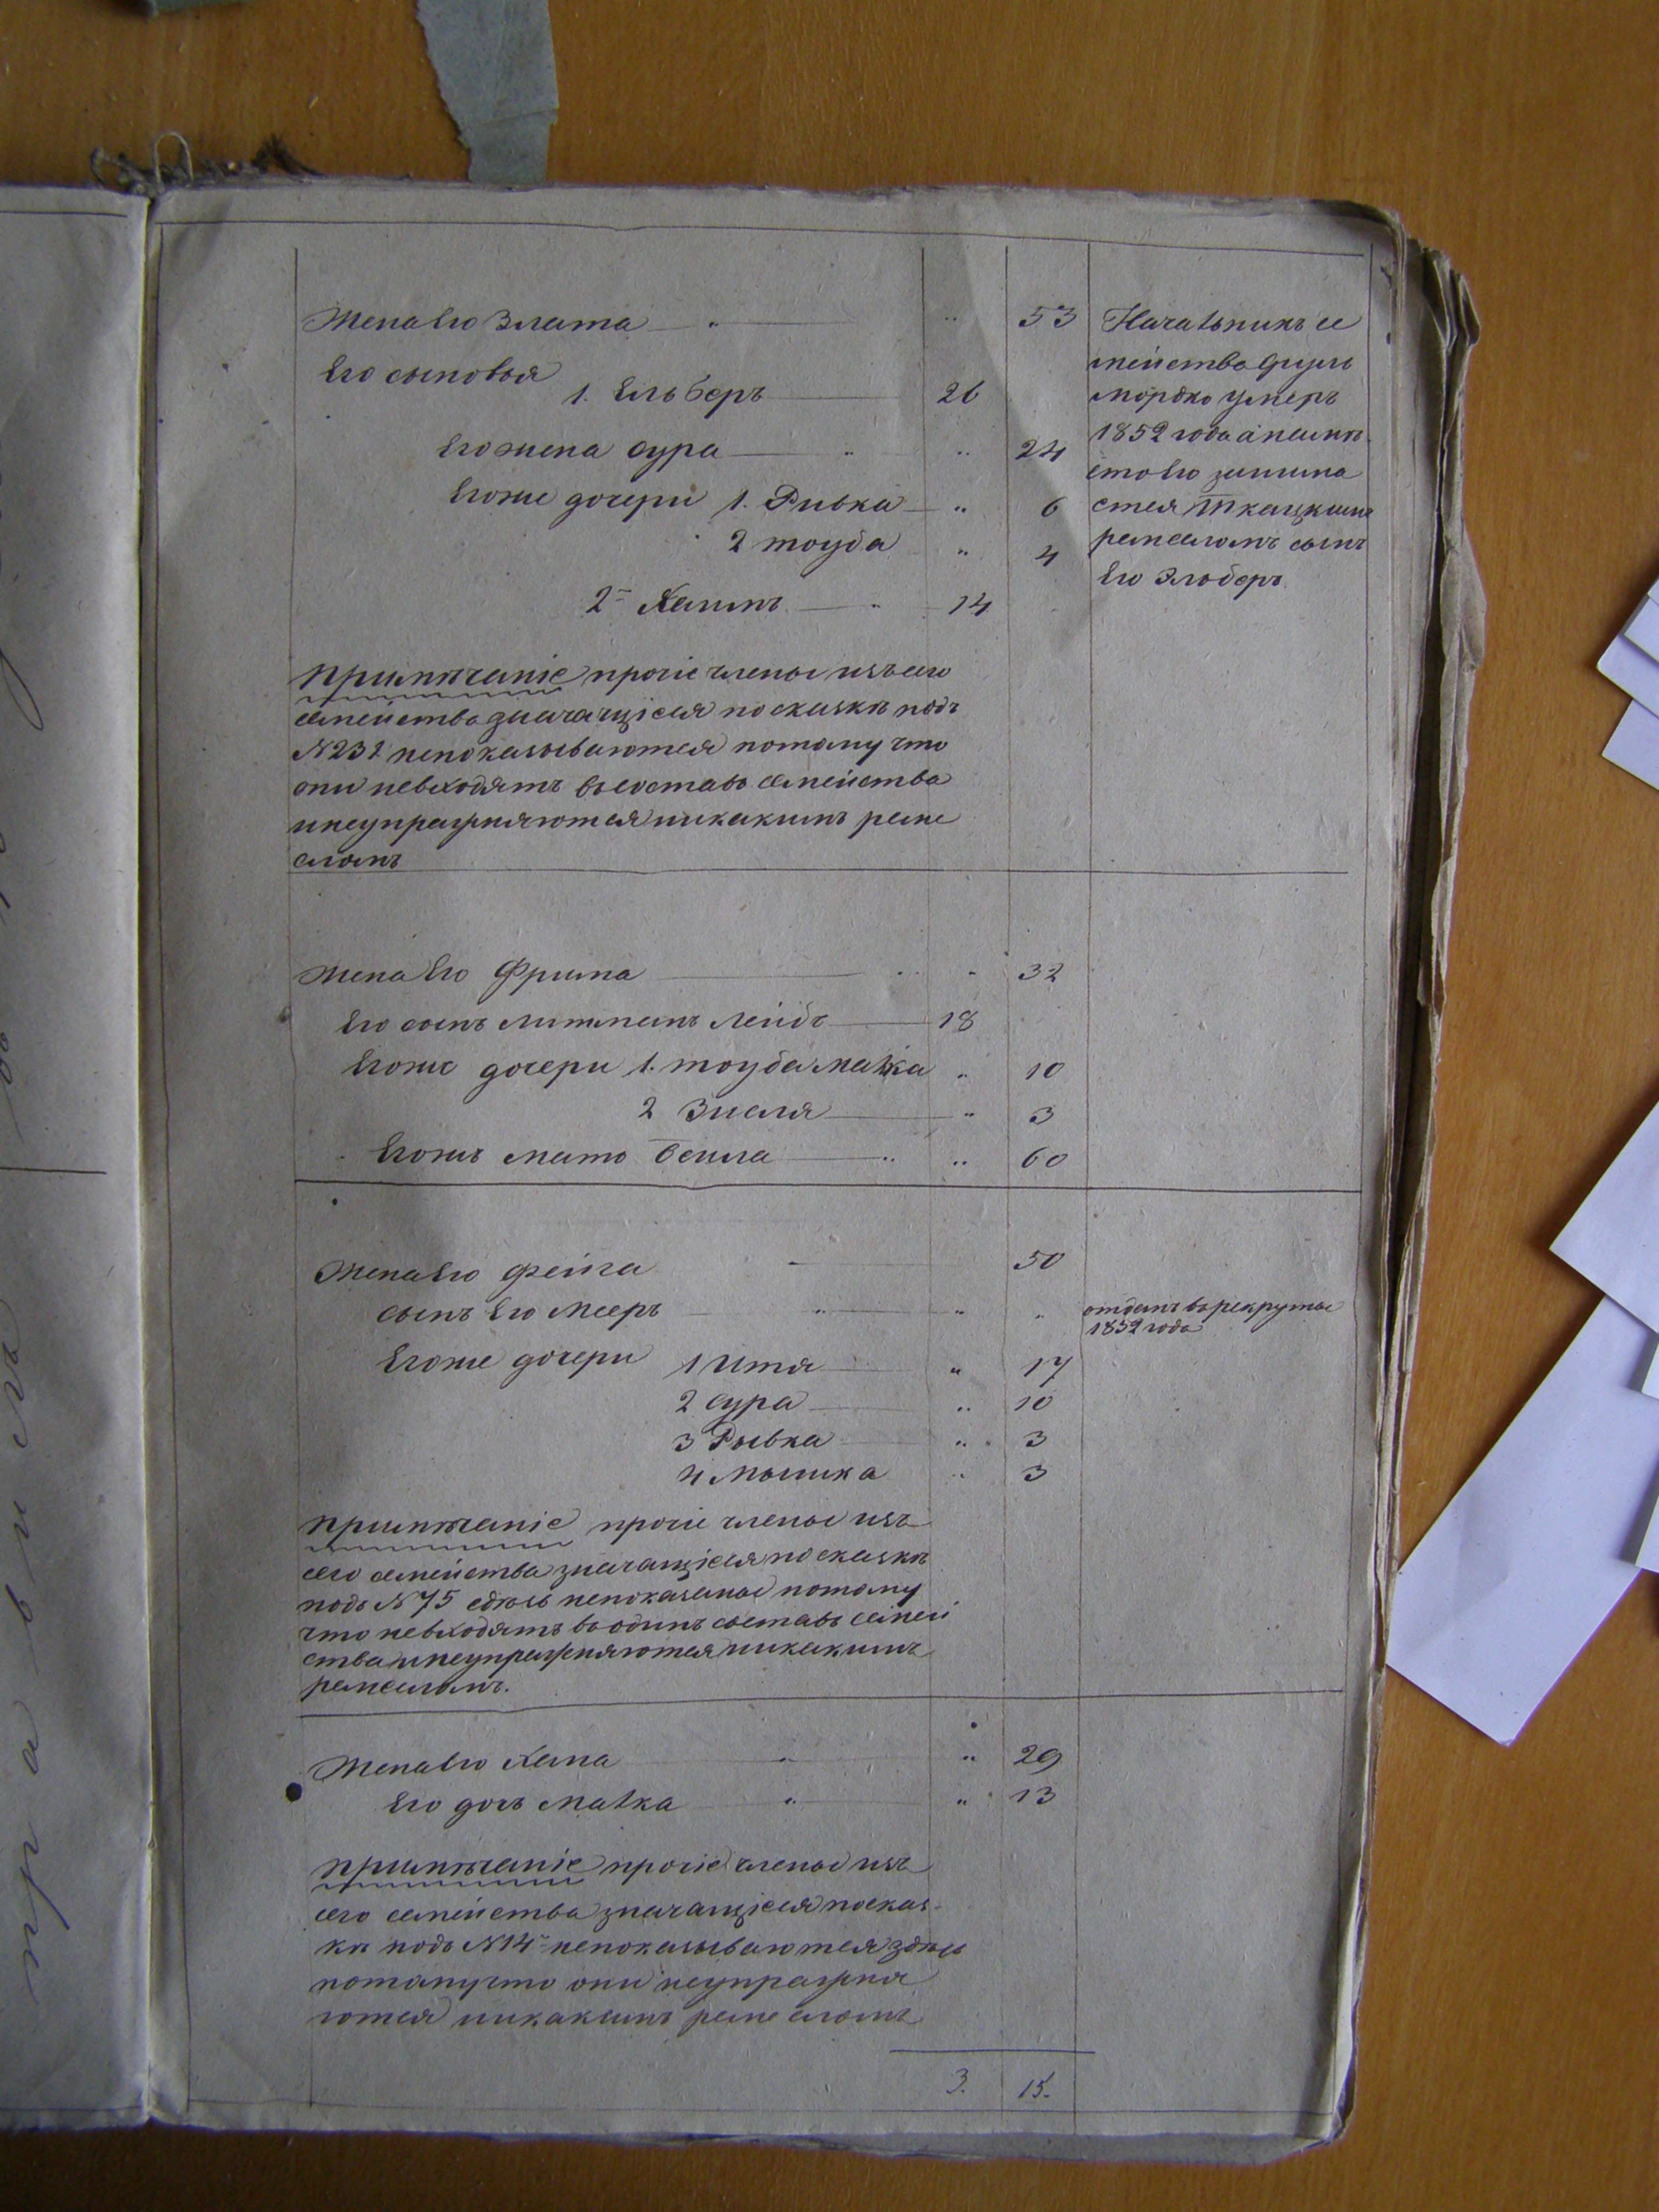 Жена его Злата " " 53
Его сыновья
1. Ельберъ 26
Его жена Сура " " 24
Его же дочери 1. Ривка " 6
2 Тоуба " 4
2й Хаимъ " 14
Начальникъ се
мейства Сруль
Мордко умеръ
1852 года а вмѣ
сто его занима
ется Ткацкимъ
ремесломъ сынъ
Его Эльберъ.
Примѣчаніе прочіе члены изъ сего
семейства значащіеся по сказкѣ подъ
N 231 непоказываются потому что
они невходятъ въ составъ семейства
инеупражняются никакимъ реме
сломъ
Жена Его Фрима " " 32
Его сынъ Литманъ Лейбъ 18
Его же дочери 1. Тоуба Малка " 10
2 Зисля " 3
Его жъ мать Бейла " " 60
Жена Его Фейга " 50
Сынъ Его Мееръ " " "
отданъ въ рекруты
1852 года
Его же дочери 1 Итя " 17
2 Сура " 10
3 Рывка " 3
4 " 3
Примѣчаніе прочіе члены изъ
сего семейства значащіеся по сказкѣ
подъ N 75 сдѣсь непоказаны потому
что невходятъ въ одинъ составъ семей
ства инеупражняются никакимъ
ремесломъ.
Жена Его Хана " " 29
Его дочь Малка " " 13
Примѣчаніе прочіе члены изъ
сего семейства значащіеся по сказ-
кѣ подъ N 14 непоказываются здѣсь
потому что они неупражня
ются никакимъ реме сломъ
3. 15.